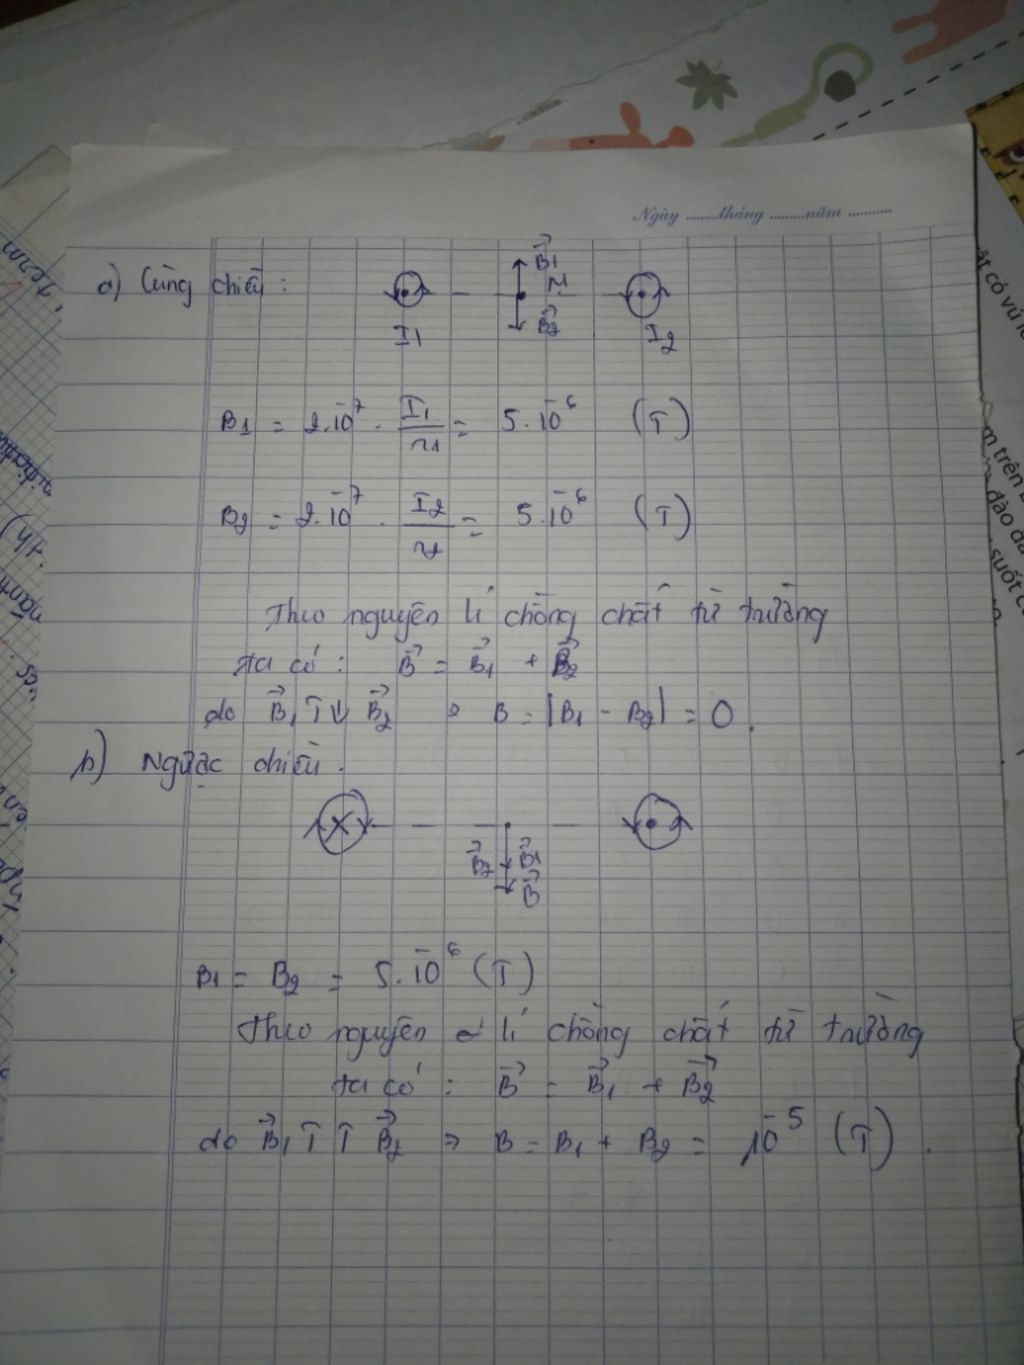 Ngày ........tháng ........năm ...........
a) Cùng chiều :
B⃗1
M
B⃗2
I1
I2
B1 = 2.10⁻⁷ . I1/r1 = 5.10⁻⁶ (T)
B2 = 2.10⁻⁷ . I2/r2 = 5.10⁻⁶ (T)
Theo nguyên lí chồng chất từ trường
ta có : B⃗ = B⃗1 + B⃗2
do B⃗1 ↑↓ B⃗2 ⇒ B = |B1 - B2| = 0.
b) Ngược chiều.
B⃗2 B⃗1
B⃗
B1 = B2 = 5.10⁻⁶ (T)
Theo nguyên lí chồng chất từ trường
ta có : B⃗ = B⃗1 + B⃗2
do B⃗1 ↑↑ B⃗2 ⇒ B = B1 + B2 = 10⁻⁵ (T).